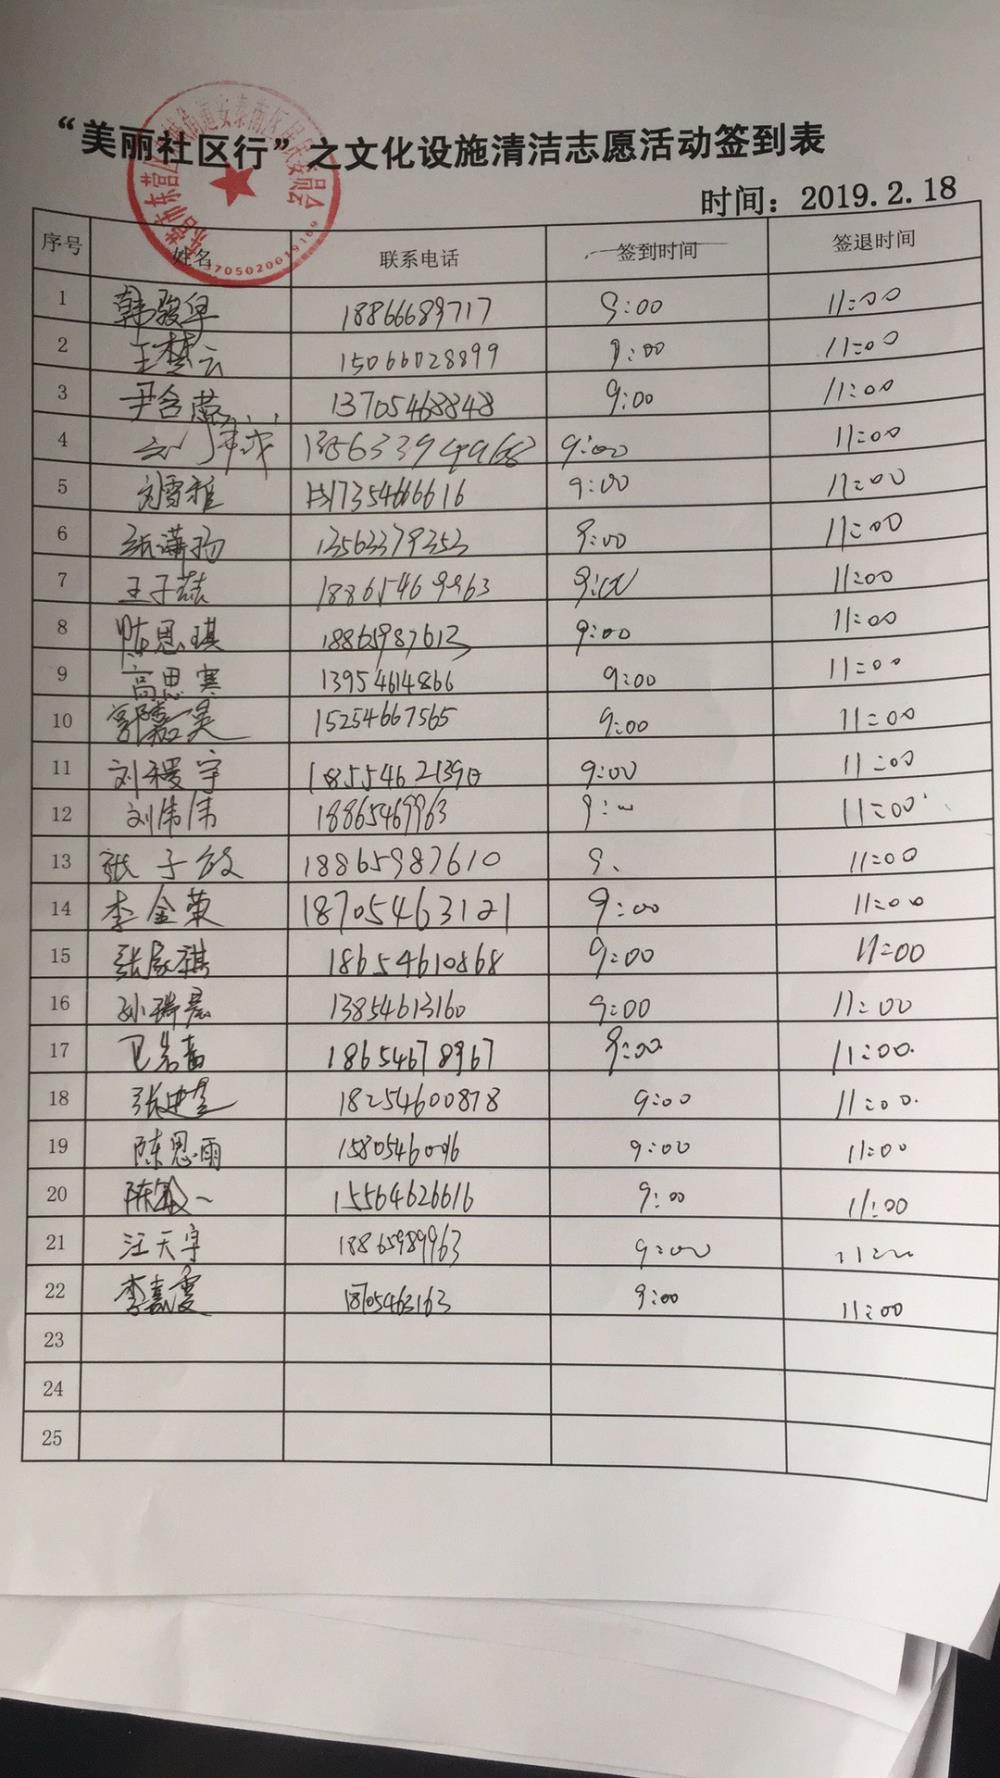 “美丽社区行”之文化设施清洁志愿活动签到表
时间：2019.2.18
序号 姓名 联系电话 签到时间 签退时间
1 韩骏华 18866689717 9:00 11:00
2 王梦云 15066028899 9:00 11:00
3 尹含蕊 13705468848 9:00 11:00
4 9:00 11:00
5 刘雪雅 9:00 11:00
6 张潇扬 13563379353 9:00 11:00
7 王子喆 18865469963 9:00 11:00
8 陈思琪 18865987613 9:00 11:00
9 高思寒 13954614866 9:00 11:00
10 郭嘉昊 15254667565 9:00 11:00
11 刘稷宇 9:00 11:00
12 刘伟伟 18865469963 9: 11:00
13 张子 18865987610 9 11:00
14 李金荣 18705463121 9:00 11:00
15 张家祺 18654610868 9:00 11:00
16 孙瑞晨 13854613160 9:00 11:00
17 18654678967 9:00 11:00
18 18254600878 9:00 11:00
19 陈思雨 9:00 11:00
20 15564626616 9:00 11:00
21 汪天宇 18865989963 9:00 11:00
22 李嘉雯 18705463163 9:00 11:00
23
24
25